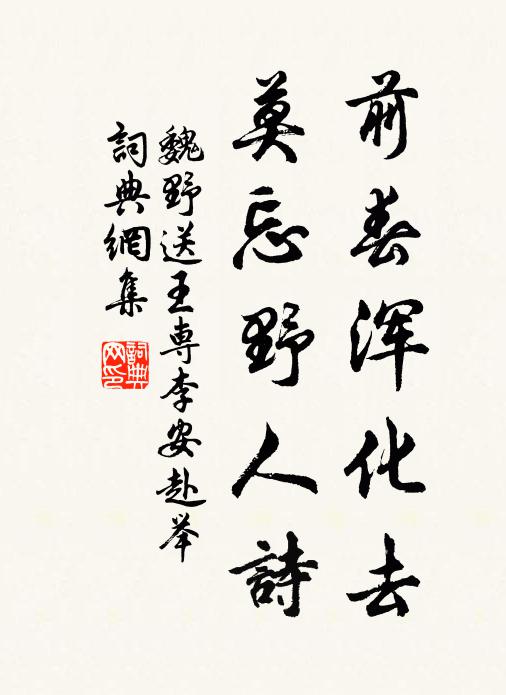 前春浑化去
莫忘野人詩
魏野送王専李安赴举
詞典網集
詞典
网印